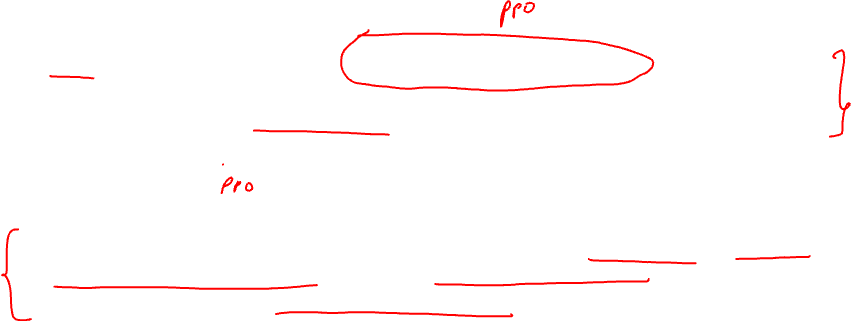 pro
pro